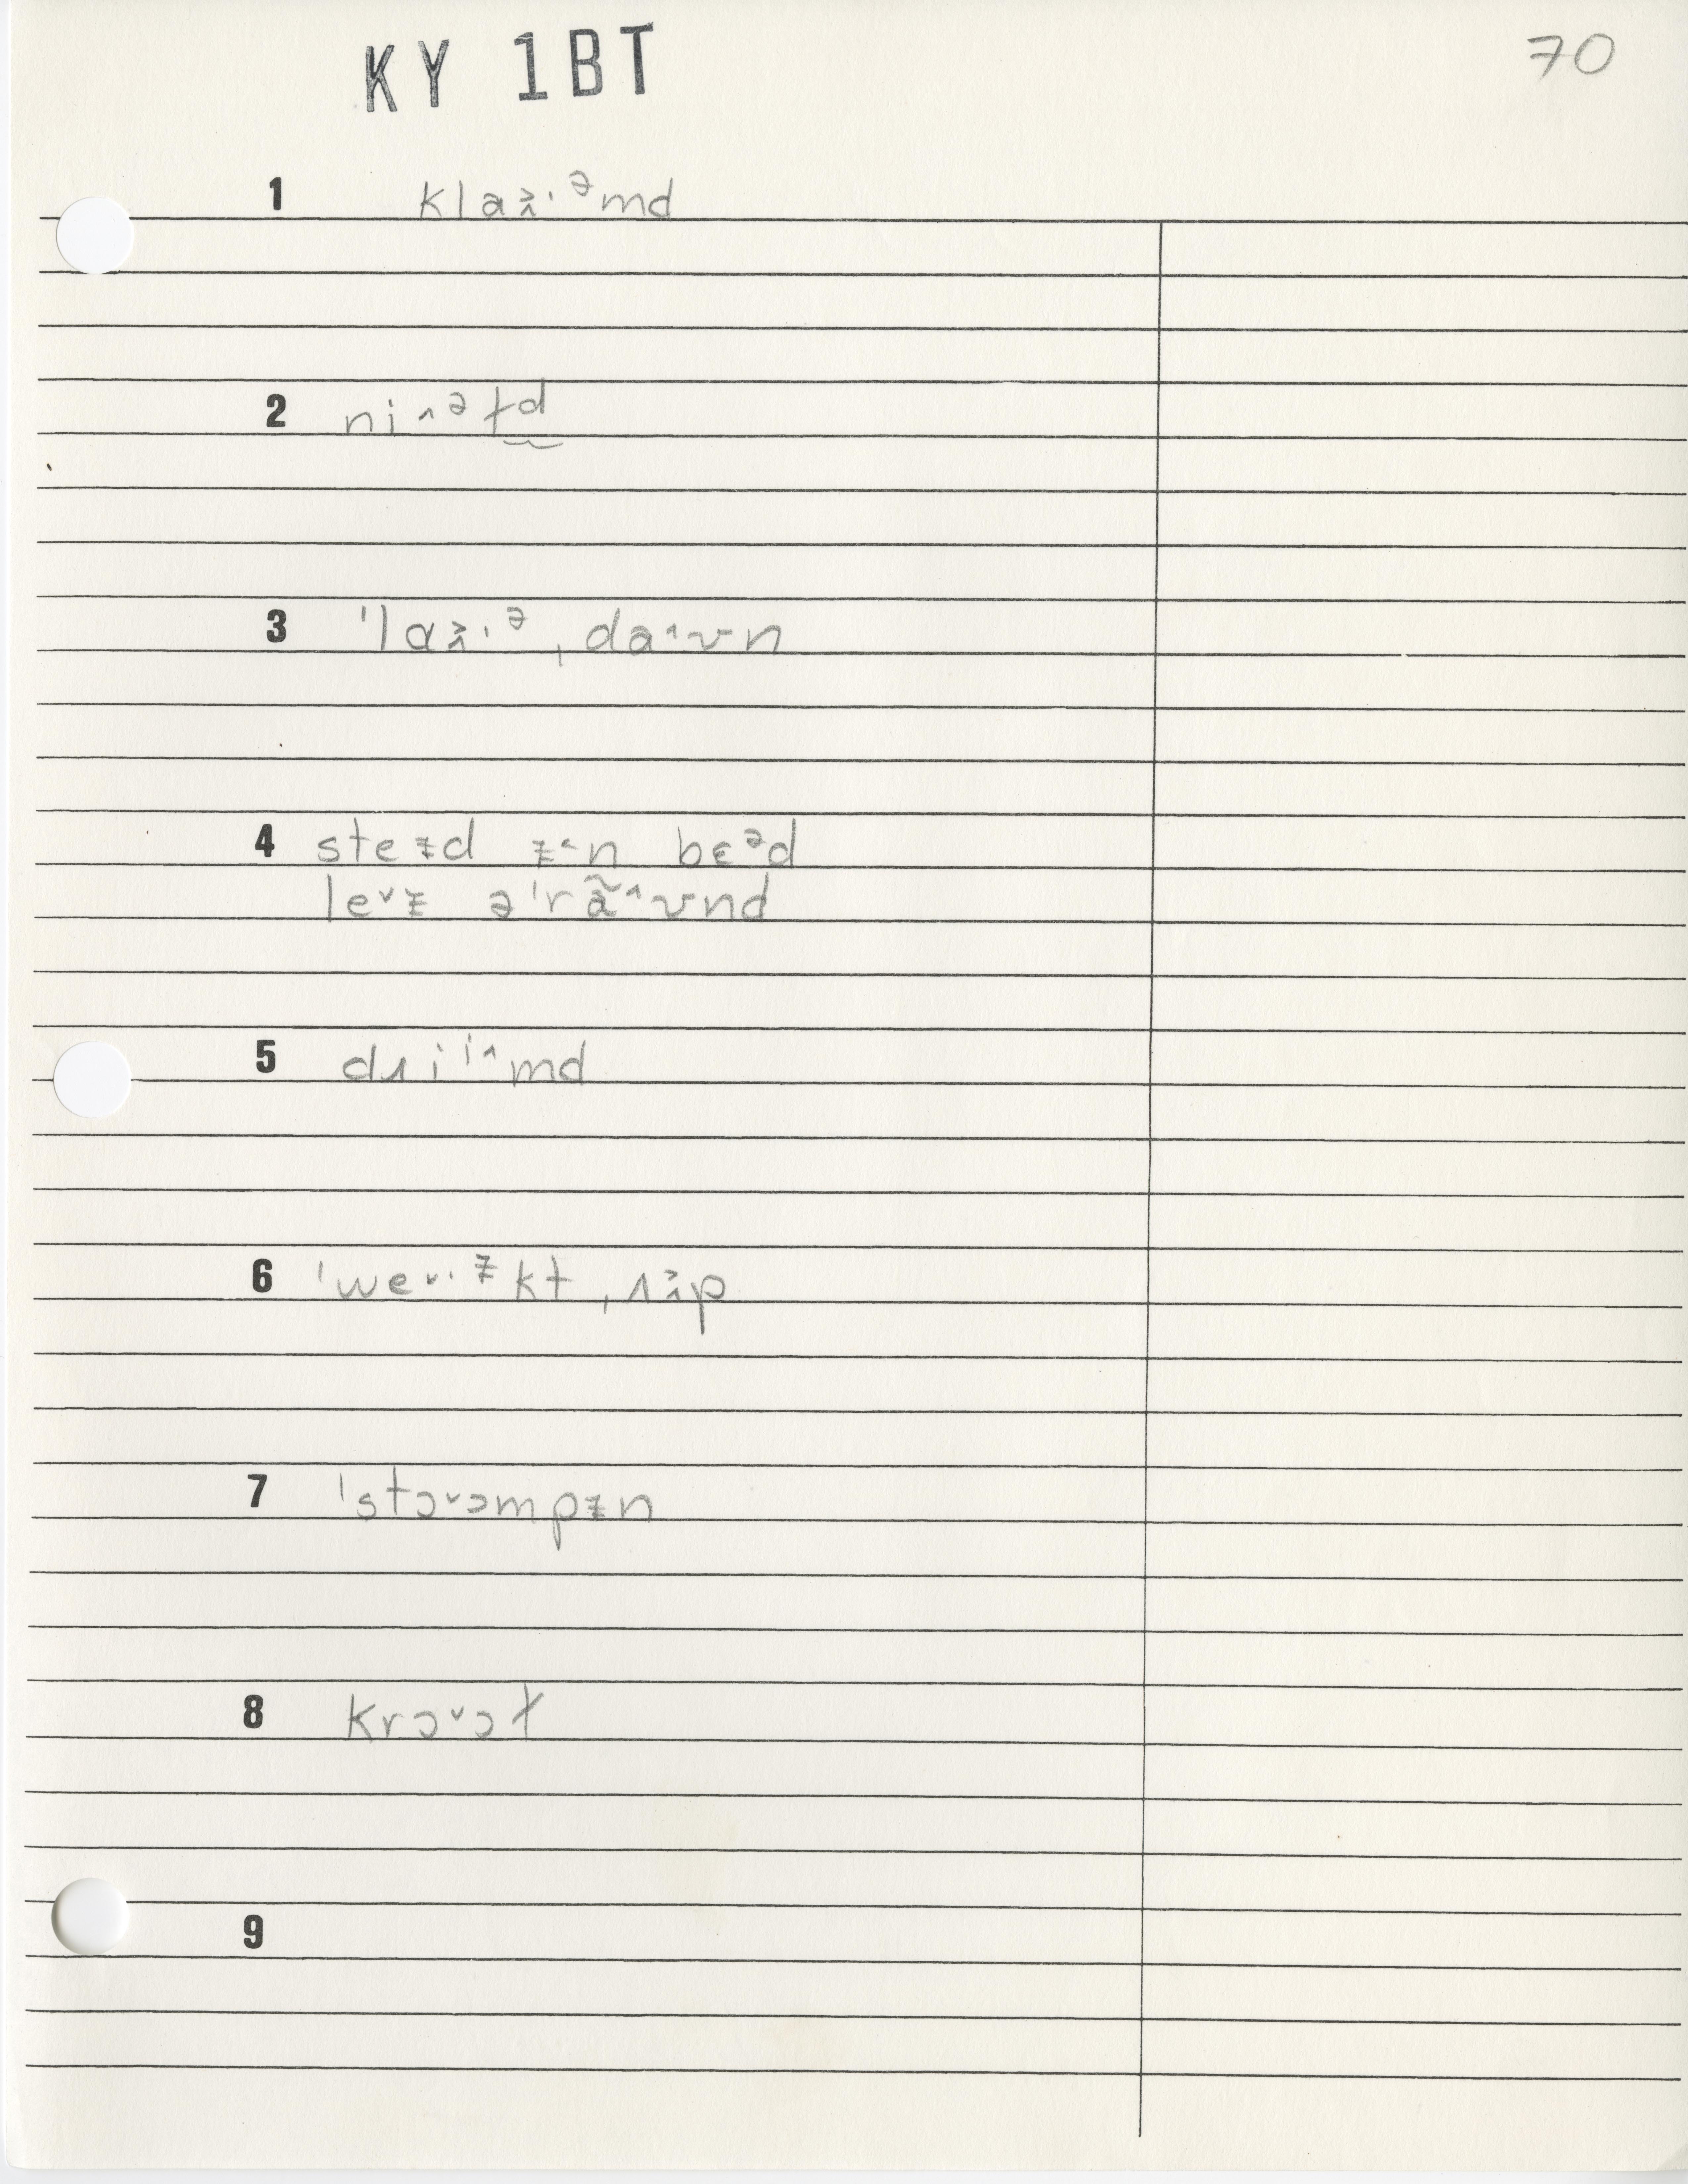 KY 1BT
70
1 klaɪ̵˃˙ᵊmd
2 ni˄ᵊɫd
3 ˈlaɪ̵˃˙ᵊˌda˄ʊn
4 steɪ̵d ɪ̵˂n bɛᵊd
le˅ɪ̵ əˈrã˄ʊnd
5 dɹiⁱ˄md
6 ˈwe˅˙ᵻktˌɹɪ̵˃p
7 ˈstɔ˅ɔmpɪ̵n
8 krɔ˅ɔɫ
9